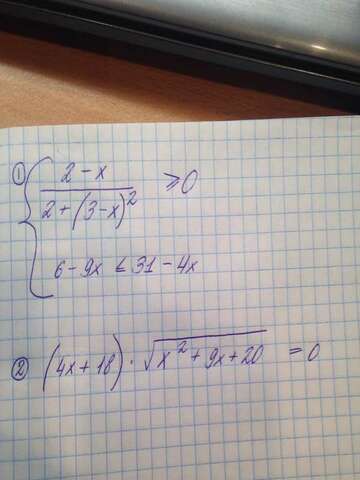 ① { (2 - x) / (2 + (3 - x)²) ≥ 0
6 - 9x ≤ 31 - 4x
② (4x + 18) · √(x² + 9x + 20) = 0